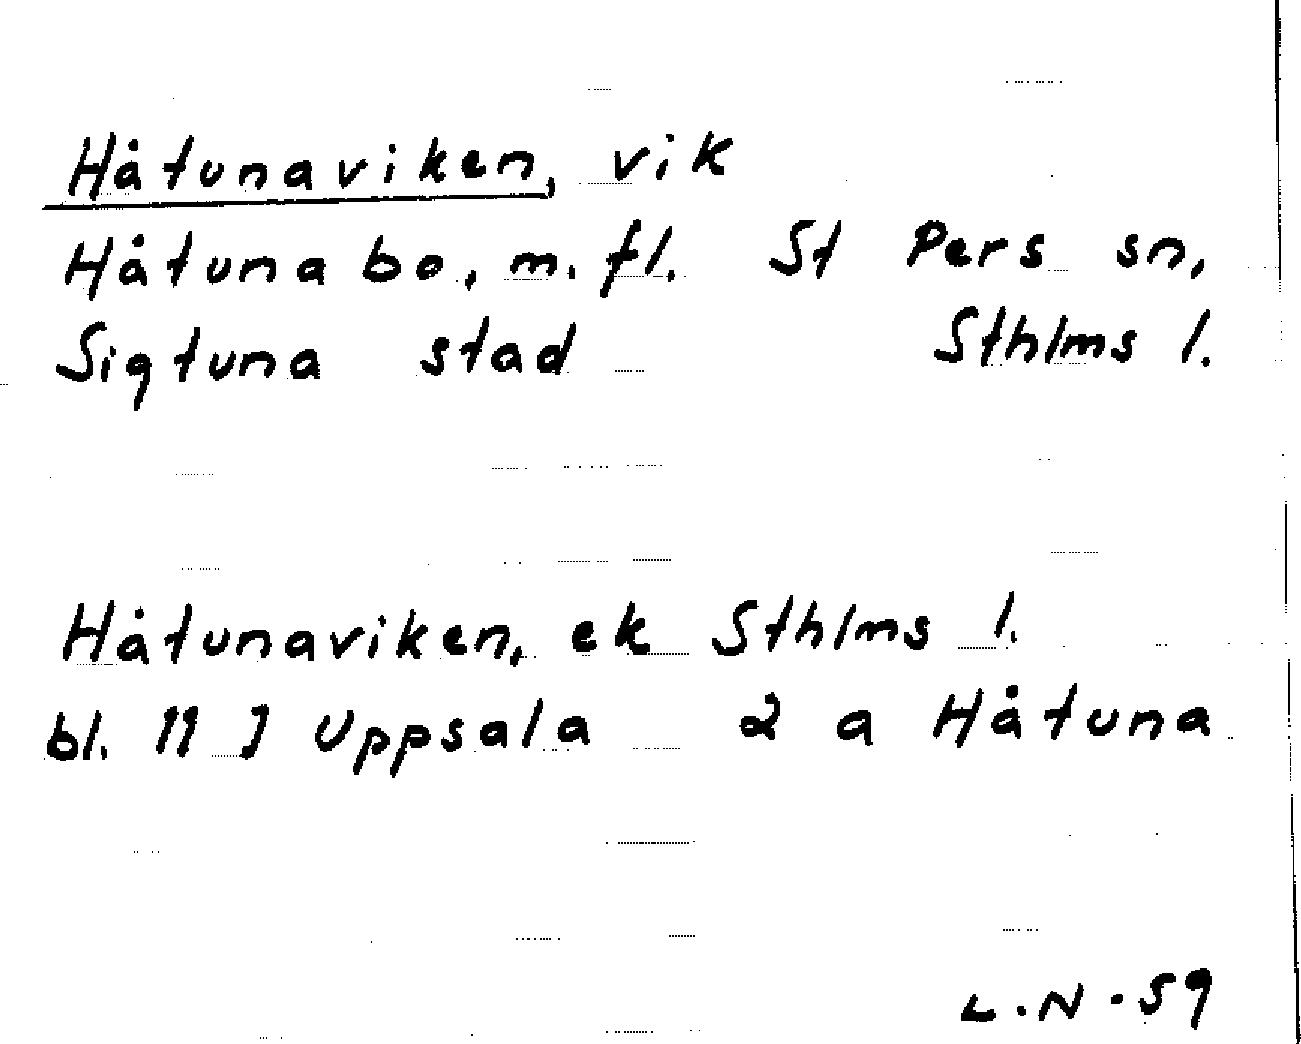 Håtunaviken, vik
Håtuna bo, m.fl. St Pers sn,
Sigtuna stad Sthlms l.
Håtunaviken, ek Sthlms l.
bl. 11 J Uppsala 2 a Håtuna
L.N. 59